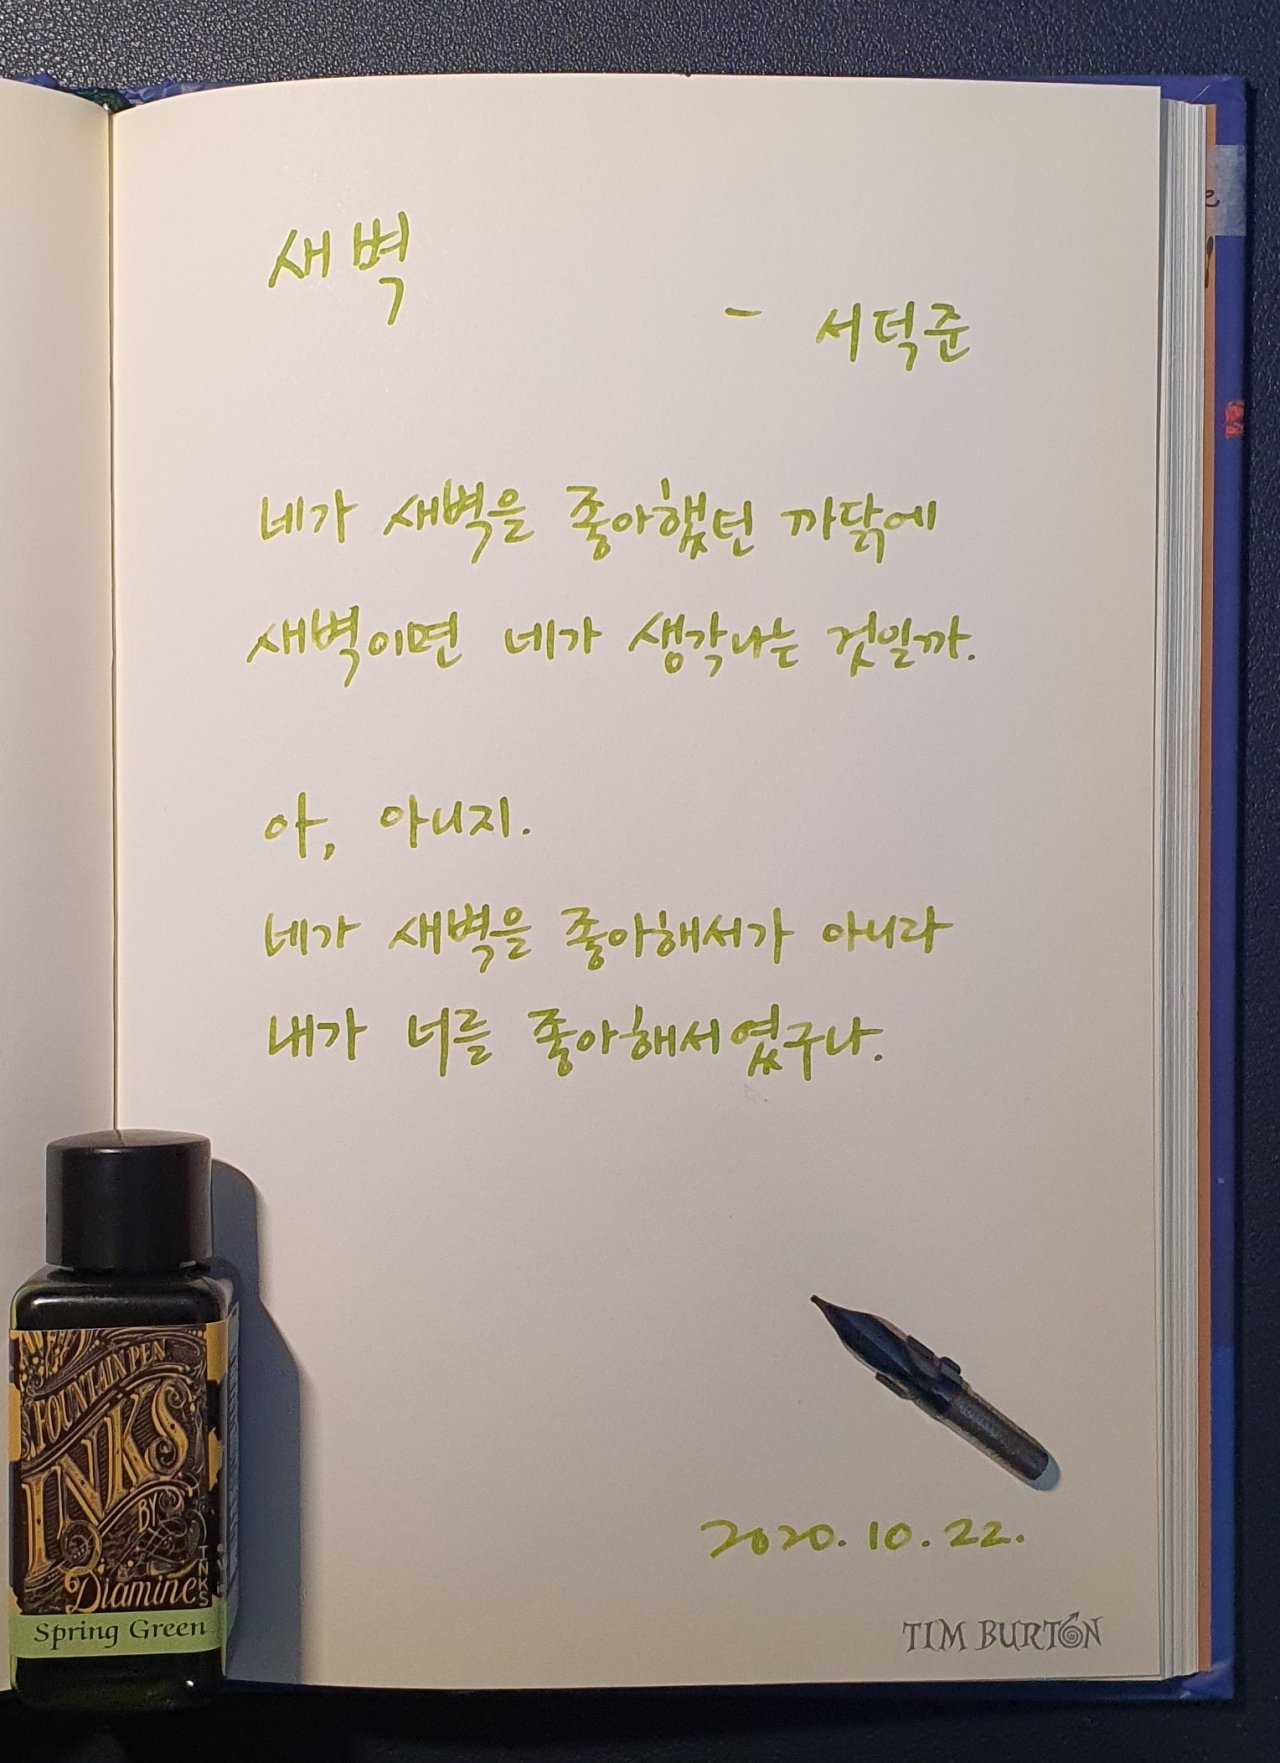 새벽
- 서덕준
네가 새벽을 좋아했던 까닭에
새벽이면 네가 생각나는 것일까.
아, 아니지.
네가 새벽을 좋아해서가 아니라
내가 너를 좋아해서였구나.
2020. 10. 22.
TIM BURTON
FOUNTAIN PEN
INKS
BY
Diamine
Spring Green